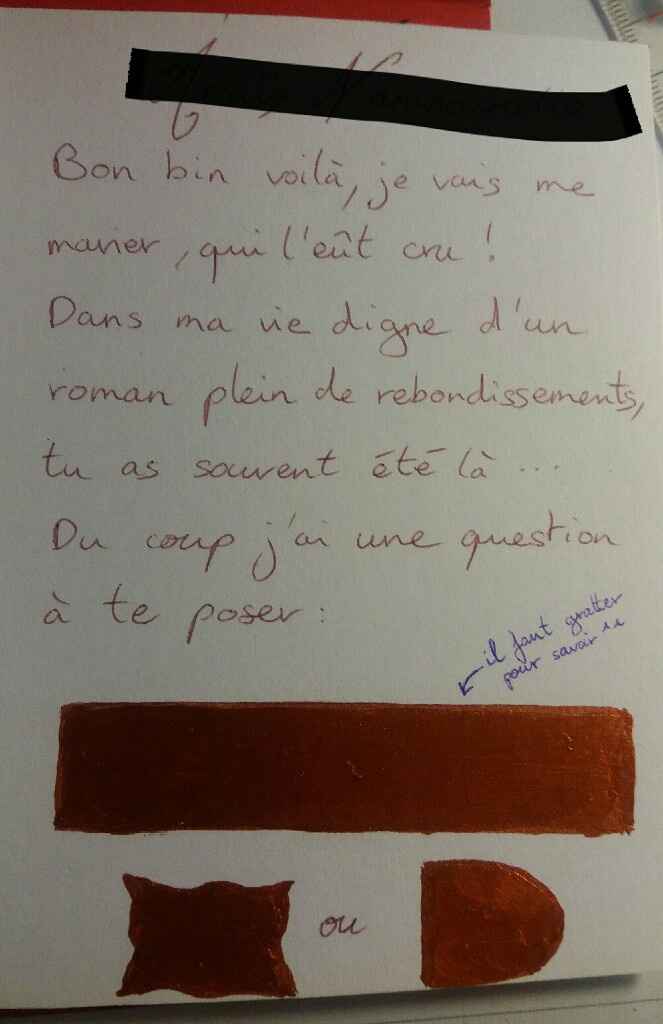 Bon bin voilà, je vais me
marier, qui l'eût cru !
Dans ma vie digne d'un
roman plein de rebondissements,
tu as souvent été là ...
Du coup j'ai une question
à te poser :
il faut gratter
pour savoir ^^
ou